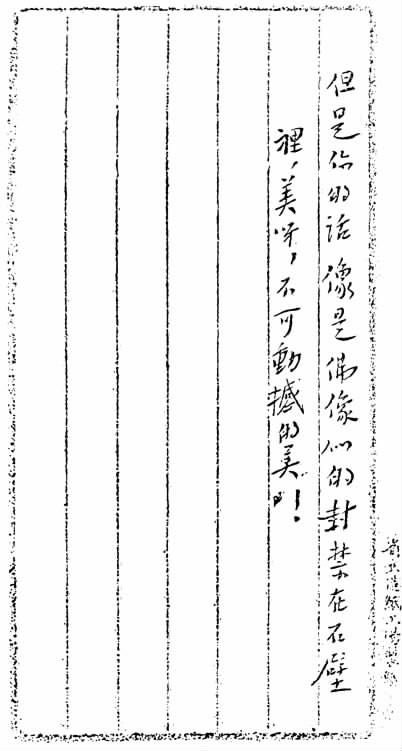 但是你的話像是佛像似的封禁在石壁
裡，美呀，不可動撼的美呀！